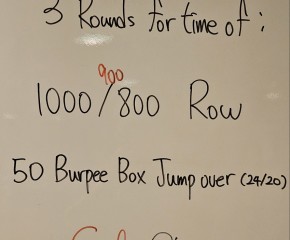 3 Rounds for time of :
900
1000/800 Row
50 Burpee Box Jump over (24/20)